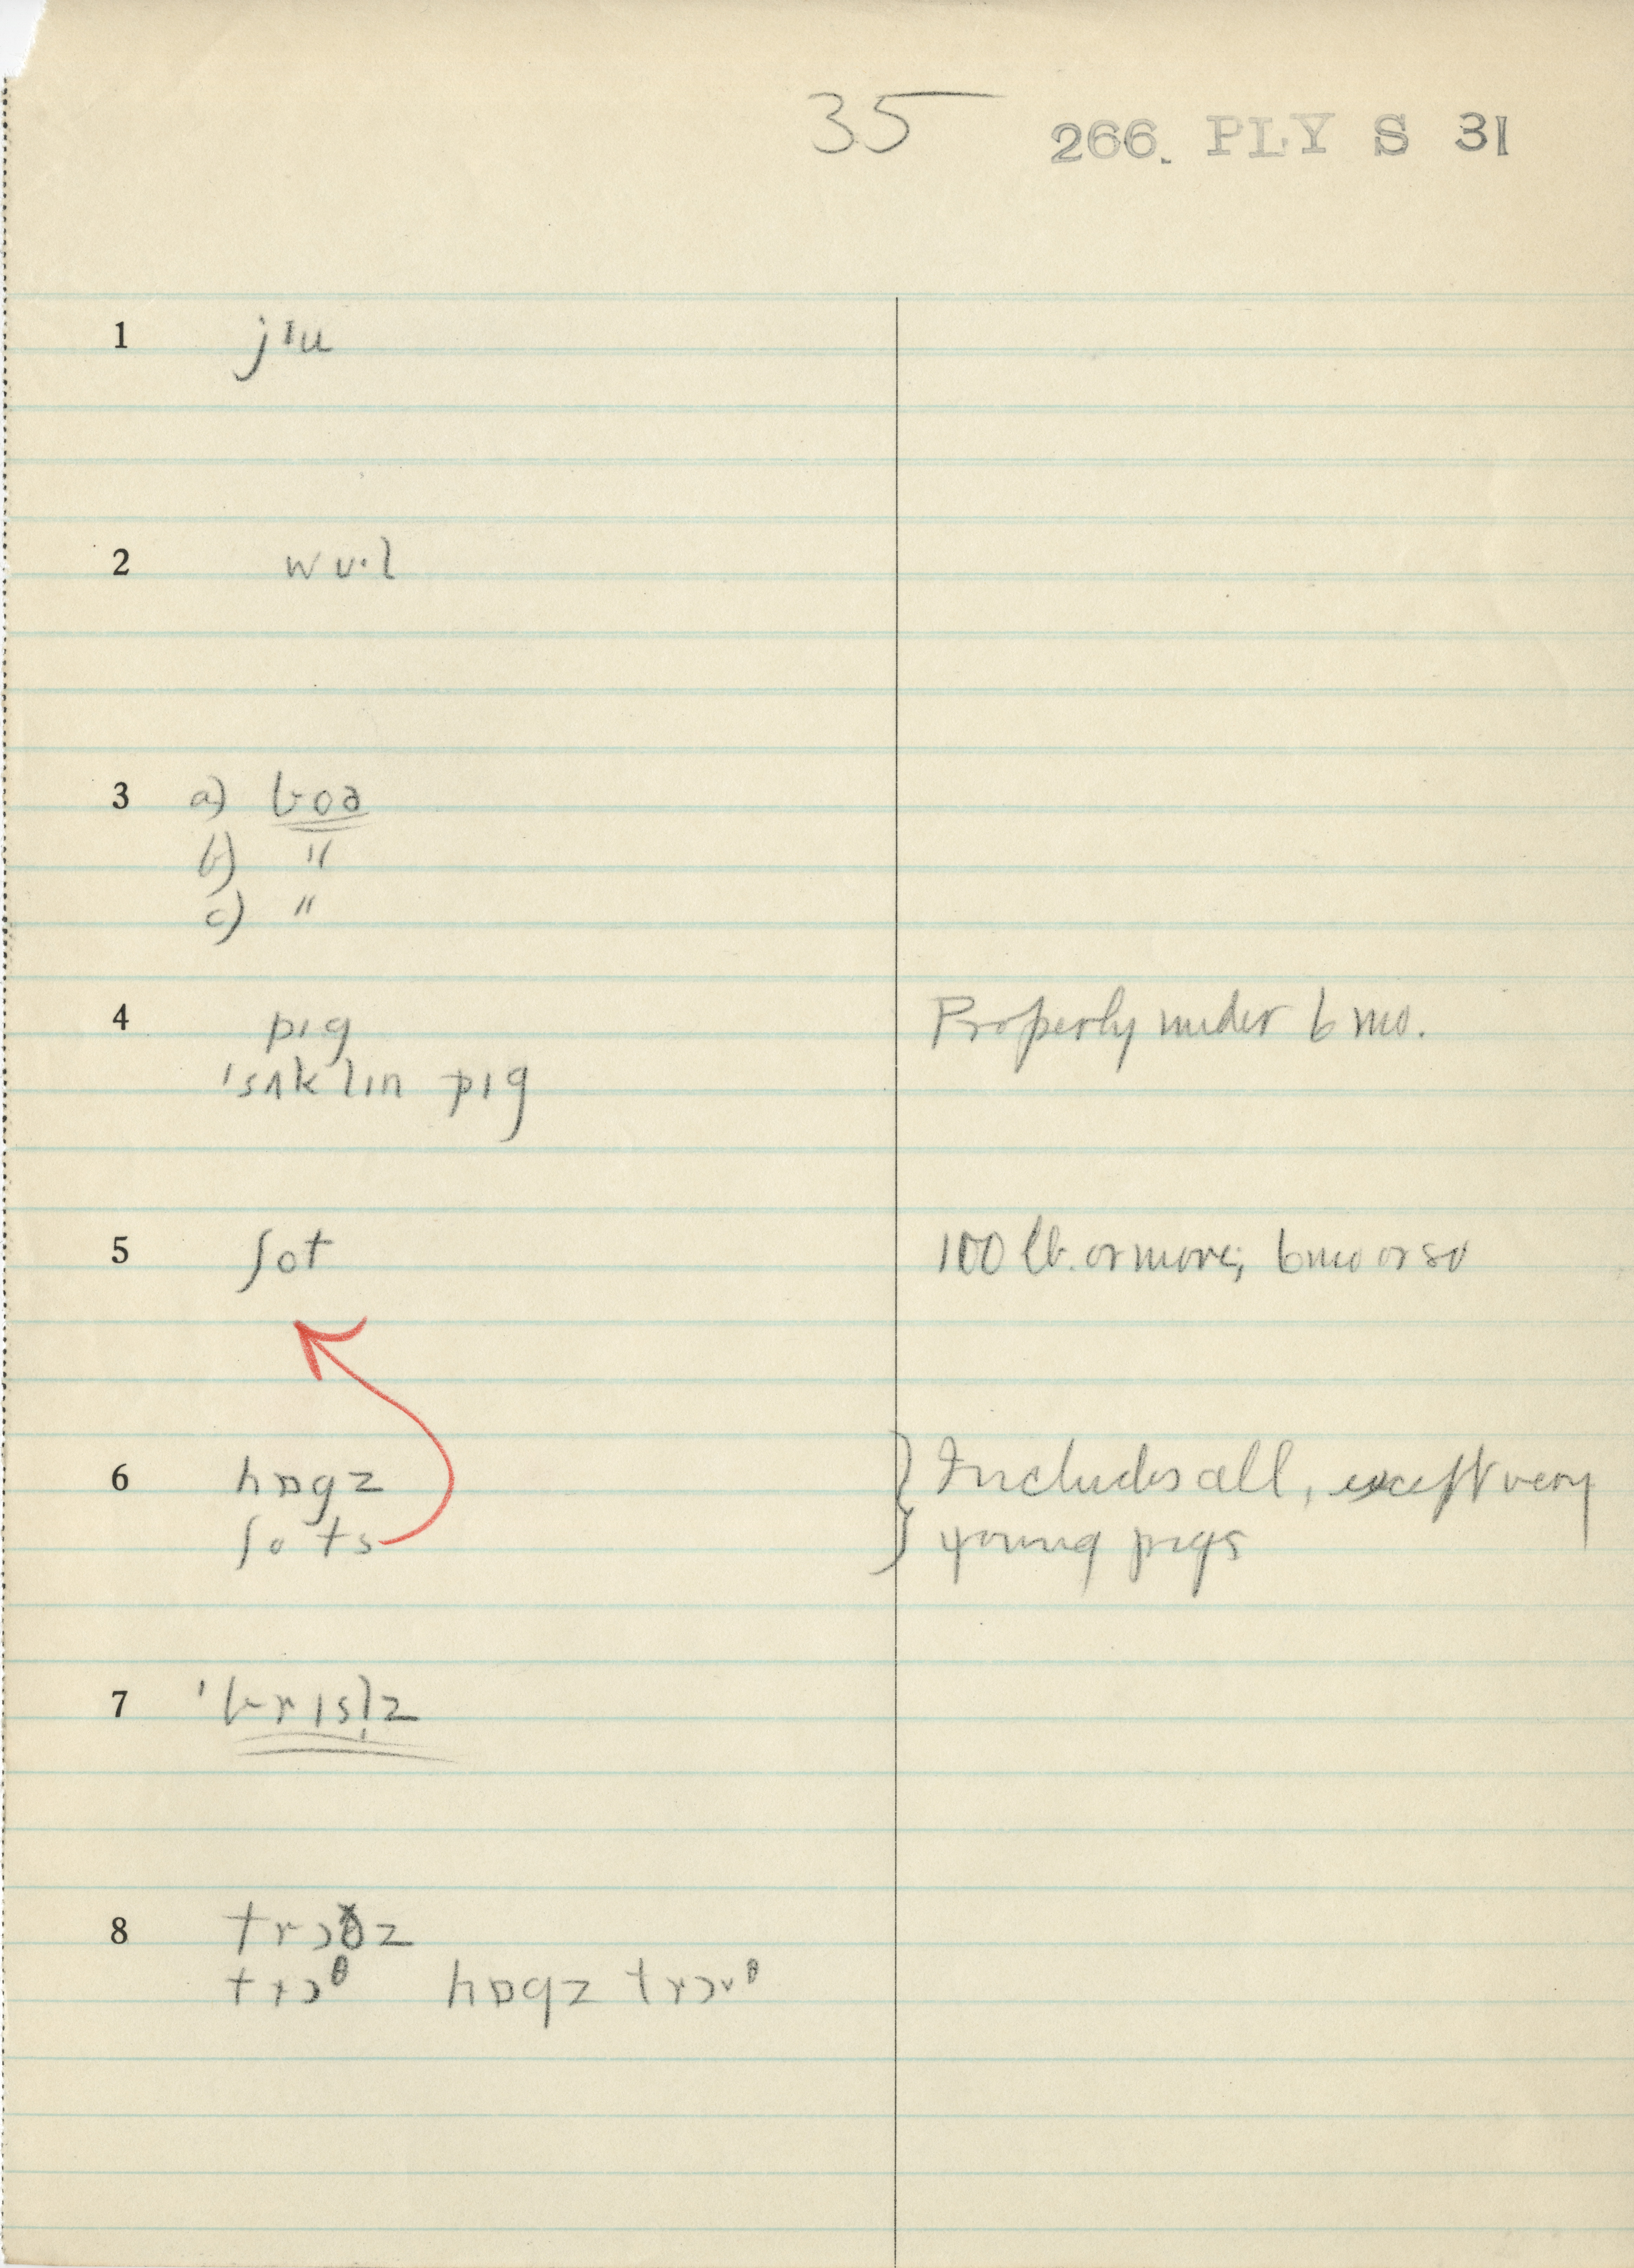 35 266. PLY S 31
1 jᶦu
2 wʊ·l
3 a) boə
b) "
c) "
4 pɪg Properly under 6 mo.
ˈsʌklɪn pɪg
5 ʃot 100 lb. or more; 6 mo or so
6 hɒgz } Includes all, except very
ʃots young pigs
7 ˈbrɪsl̩z
8 trɔðz
trɔᶿ hɒgz trɔᶿ